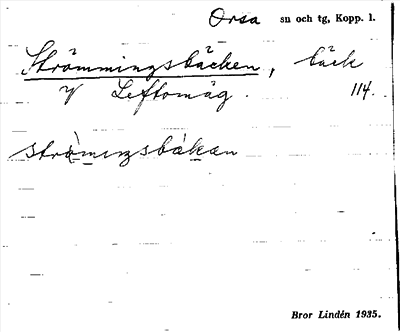 Orsa sn och tg, Kopp. l.
Strömmingsbäcken, bäck
V Leftomäg. 114.
strömıngsbäkan
Bror Lindén 1935.